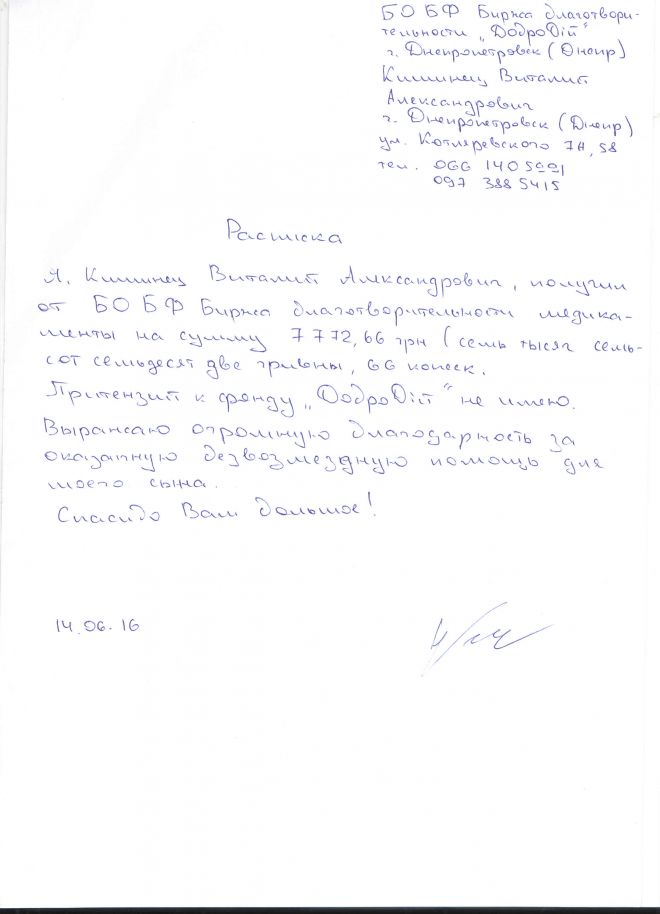 БО БФ Биржа благотвори-
тельности „ДоброДій"
г. Днепропетровск (Днепр)
Кишинец Виталий
Александрович
г. Днепропетровск (Днепр)
ул. Котляревского 7А, 58
тел. 066 140 5991
097 388 5415
Расписка
Я, Кишинец Виталий Александрович, получил
от БО БФ Биржа благотворительности медика-
менты на сумму 7 772,66 грн (семь тысяч семь-
сот семьдесят две гривны, 66 копеек.
Притензий к фонду „ДоброДій" не имею.
Выражаю огромную благодарность за
оказанную безвозмездную помощь для
моего сына.
Спасибо Вам большое!
14.06.16